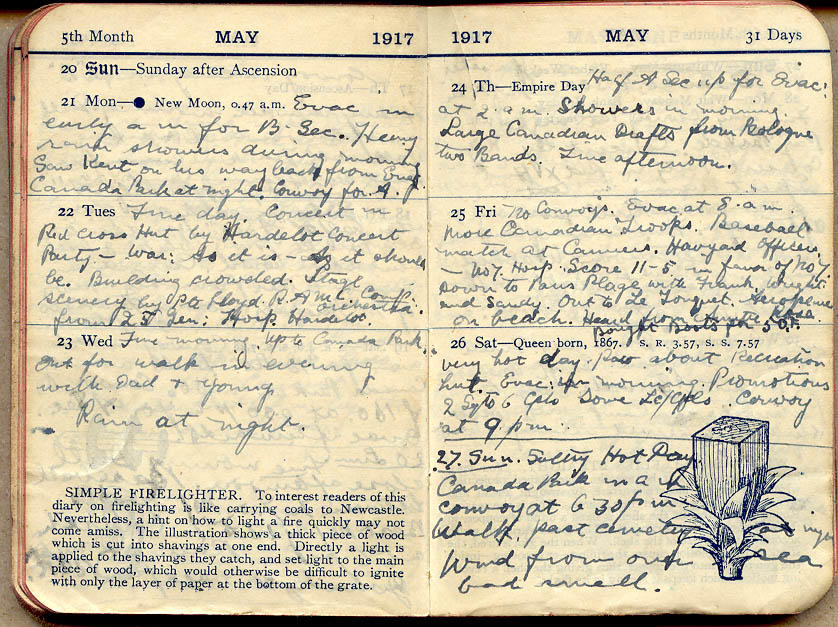 5th Month MAY 1917
20 Sun—Sunday after Ascension
21 Mon—● New Moon, 0.47 a.m. Evac in
early a m for B. Sec. Heavy
rain showers during morning
Saw Kent on his way back from Evac
Canada Park at night. Convoy for A.
22 Tues Fine day. Concert in
Red Cross Hut by Hardelot Concert
Party - War: As it is - As it should
be. Building crowded. Stage
scenery by Pte Lloyd R.A.M.C.
Orchestra
from 25 Gen: Hosp. Hardelot.
23 Wed Fine morning. Up to Canada Park.
Out for walk in evening
with Dad & Young
Rain at night.
SIMPLE FIRELIGHTER. To interest readers of this
diary on firelighting is like carrying coals to Newcastle.
Nevertheless, a hint on how to light a fire quickly may not
come amiss. The illustration shows a thick piece of wood
which is cut into shavings at one end. Directly a light is
applied to the shavings they catch, and set light to the main
piece of wood, which would otherwise be difficult to ignite
with only the layer of paper at the bottom of the grate.
1917 MAY 31 Days
24 Th—Empire Day Half A Sec up for Evac:
at 2 a.m. Showers in morning.
Large Canadian Drafts from Bologne
two Bands. Fine afternoon.
25 Fri No Convoys. Evac at 8 a.m.
More Canadian Troops. Baseball
match at Camiers. Havyard Officers
- No 7. Hosp. Score 11-5 in favor of No 7
Down to Paris Plage with Frank, Wright
and Sandy. Out to Le Touquet. Aeroplane
on beach. Heard from
Bought Boots for 5 0 F.
26 Sat—Queen born, 1867. S. R. 3.57, S. S. 7.57
Very hot day. about Recreation
hut. Evac: in morning. Promotions
2 Sgts 6 Cpls Dove Convoy
at 9 pm.
27. Sun. Sultry Hot Day
Canada Park in a m
convoy at 6 30 pm
Walk past cemetery at night
Wind from over sea
bad smell.